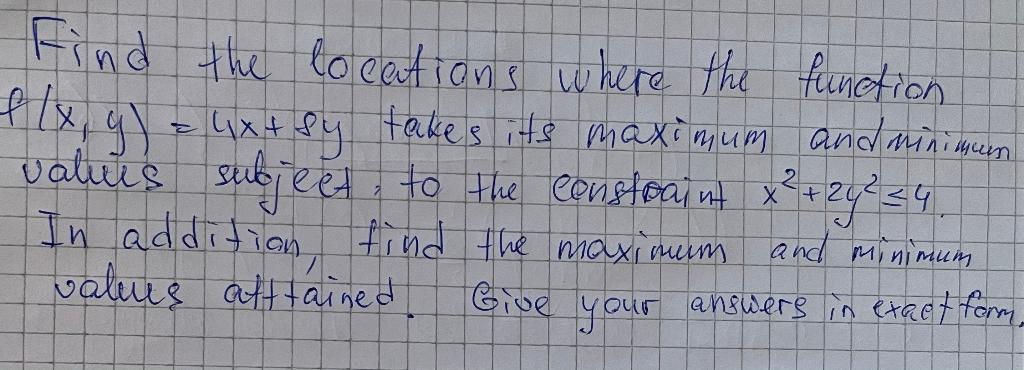 Find the locations where the function
f(x, y) = 4x + 8y takes its maximum and minimum
values subject, to the constraint x² + 2y² ≤ 4.
In addition, find the maximum and minimum
values atttained. Give your answers in exact form.